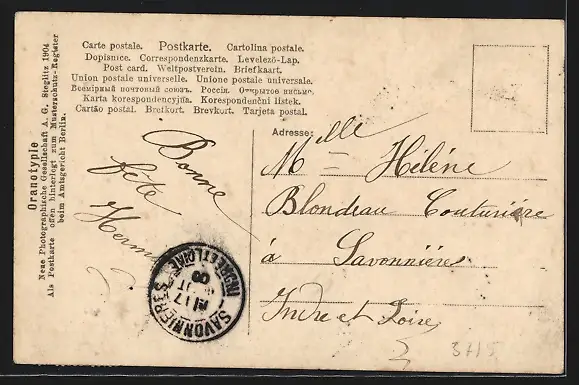 Carte postale. Postkarte. Cartolina postale.
Dopisnice. Correspondenzkarte. Levelező-Lap.
Post card. Weltpostverein. Briefkaart.
Union postale universelle. Unione postale universale.
Всемірный почтовый союзъ. Россія. Открытое письмо.
Karta korespondencyjna. Korespondenční listek.
Cartão postal. Brefkort. Brevkort. Tarjeta postal.
Oranotypie
Neue Photographische Gesellschaft A. G. Steglitz 1904
Als Postkarte offen hinterlegt zum Musterschutz-Register
beim Amtsgericht Berlin.
Bonne
fête
Adresse: Melle
Hélène
Blondeau Couturière
à Savonnières
Indre et Loire
SAVONNIÈRES
INDRE ET LOIRE
17
08
3715